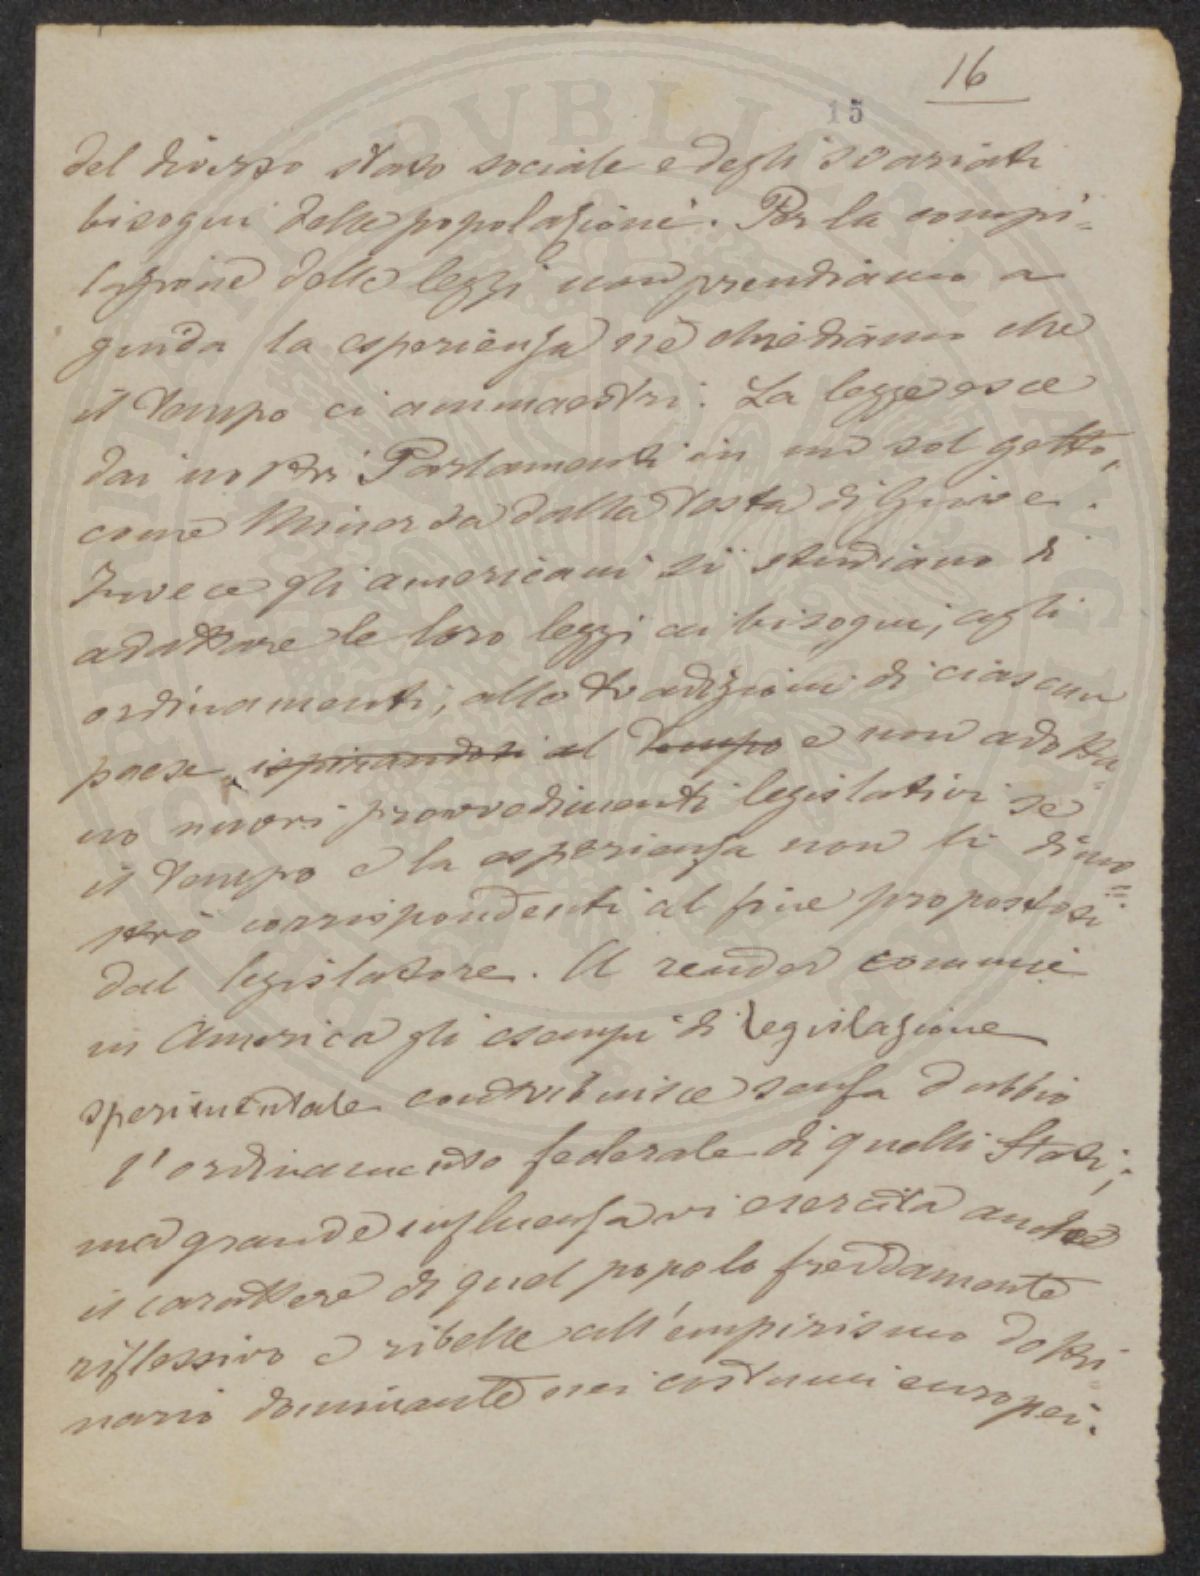 16
15
del diverso stato sociale e degli svariati
bisogni delle popolazioni. Per la compi=
lazione delle leggi non prendiamo a
guida la esperienza nè chiediamo che
il tempo ci ammaestri. La legge esce
dai nostri Parlamenti in un sol getto,
come Minerva dalla testa di Giove.
Invece gli americani si studiano di
adattare le loro leggi ai bisogni, agli
ordinamenti, alle tradizioni di ciascun
paese, ispirandosi al tempo e non adotta=
no nuovi provvedimenti legislativi se
il tempo e la esperienza non li dimo=
strò corrispondenti al fine propostosi
dal legislatore. A render comuni
in America gli esempi di legislazione
sperimentale contribuisce senza dubbio
l'ordinamento federale di quelli Stati;
ma grande influenza vi esercita anche
il carattere di quel popolo freddamente
riflessivo e ribelle all'empirismo dottri=
nario dominante nei costumi europei.